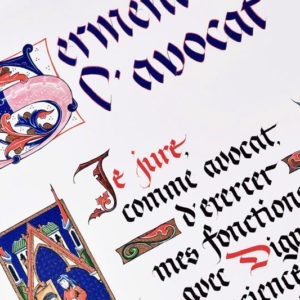 Serment
d'avocat
Je jure,
comme avocat,
d'exercer
mes fonctions
avec Dign
science